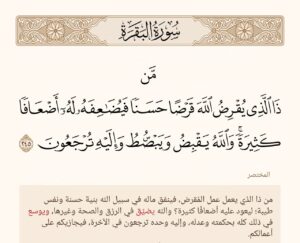 سُورَةُ البَقَرَةِ
مَّن
ذَا ٱلَّذِي يُقۡرِضُ ٱللَّهَ قَرۡضًا حَسَنٗا فَيُضَٰعِفَهُۥ لَهُۥٓ أَضۡعَافٗا
كَثِيرَةٗۚ وَٱللَّهُ يَقۡبِضُ وَيَبۡصُۜطُ وَإِلَيۡهِ تُرۡجَعُونَ ٢٤٥
المختصر
من ذا الذي يعمل عمل المُقرض، فينفق ماله في سبيل الله بنية حسنة ونفس
طيبة؛ ليعود عليه أضعافًا كثيرة؟ والله يضيّق في الرزق والصحة وغيرها، ويوسع
في ذلك كله بحكمته وعدله، وإليه وحده ترجعون في الآخرة، فيجازيكم على
أعمالكم.